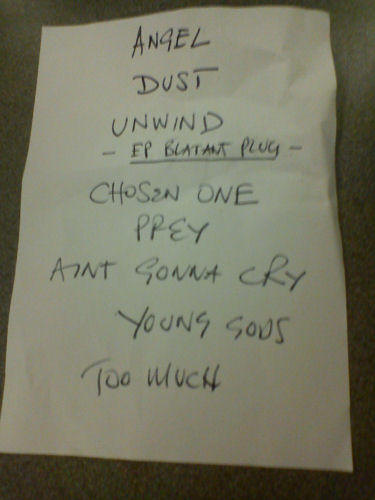 ANGEL
DUST
UNWIND
- EP BLATANT PLUG -
CHOSEN ONE
PREY
AINT GONNA CRY
YOUNG GODS
TOO MUCH